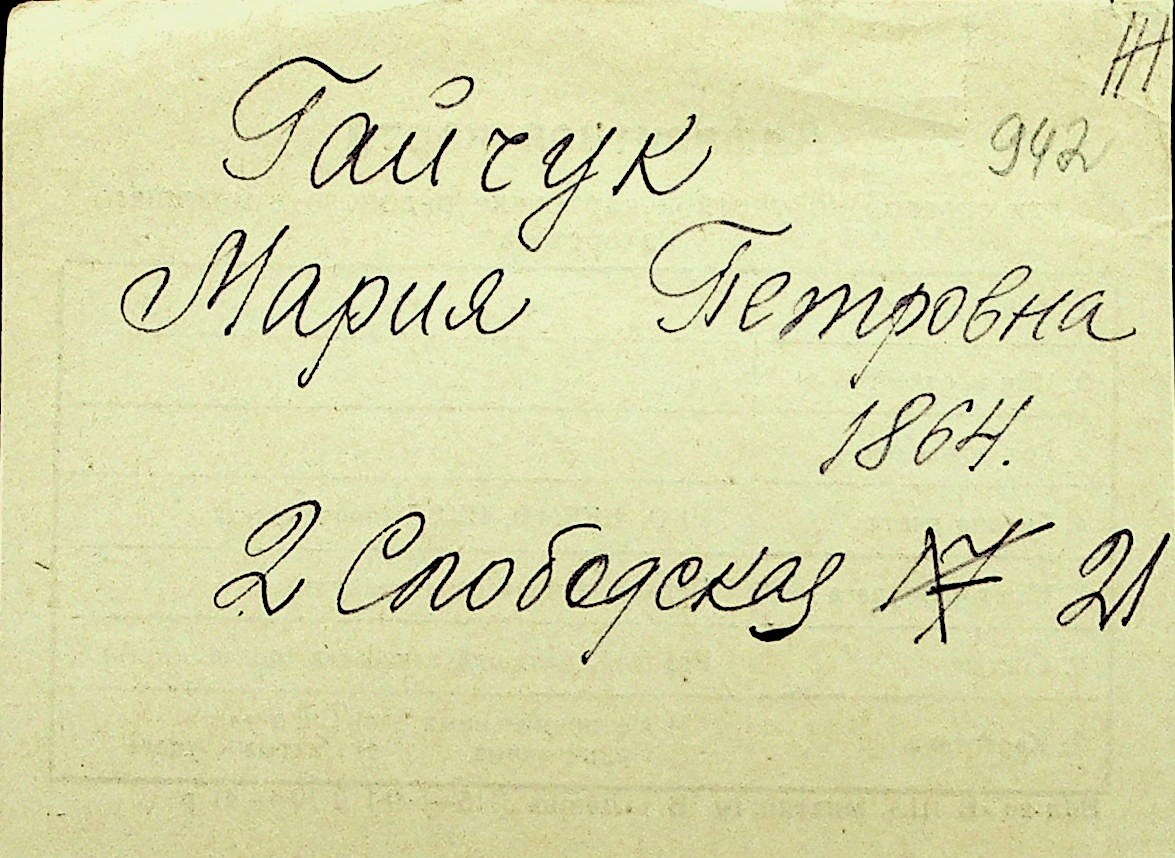 Ж
Гайчук
942
Мария Петровна
1864.
2 Слободская 21